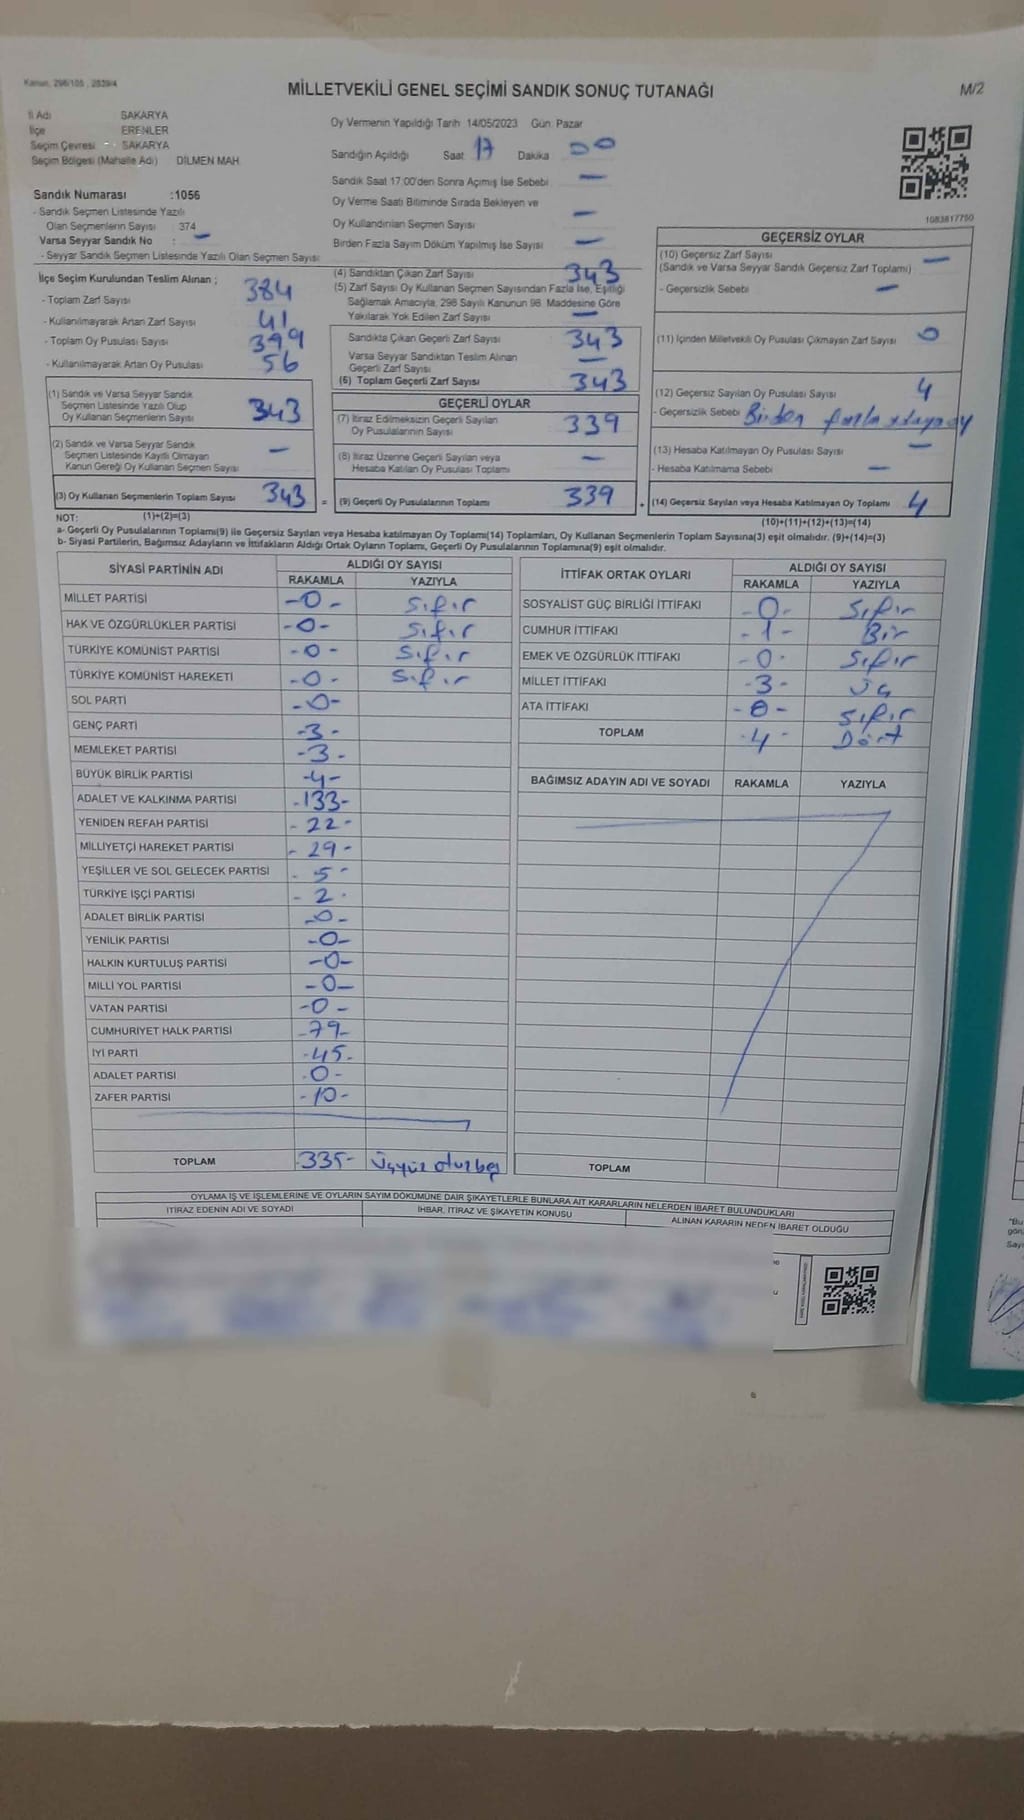 Kanun, 298/105 , 2839/4
MİLLETVEKİLİ GENEL SEÇİMİ SANDIK SONUÇ TUTANAĞI
M/2
İl Adı SAKARYA
İlçe ERENLER
Seçim Çevresi SAKARYA
Seçim Bölgesi (Mahalle Adı) DİLMEN MAH.
Oy Vermenin Yapıldığı Tarih 14/05/2023 Gün: Pazar
Sandığın Açıldığı Saat 17 Dakika 00
Sandık Saat 17:00'den Sonra Açımış İse Sebebi —
Oy Verme Saati Bitiminde Sırada Bekleyen ve
Oy Kullandırılan Seçmen Sayısı —
Birden Fazla Sayım Döküm Yapılmış İse Sayısı —
1083817750
Sandık Numarası :1056
- Sandık Seçmen Listesinde Yazılı
Olan Seçmenlerin Sayısı 374
Varsa Seyyar Sandık No : —
- Seyyar Sandık Seçmen Listesinde Yazılı Olan Seçmen Sayısı
İlçe Seçim Kurulundan Teslim Alınan ;
- Toplam Zarf Sayısı 384
- Kullanılmayarak Artan Zarf Sayısı 41
- Toplam Oy Pusulası Sayısı 399
- Kullanılmayarak Artan Oy Pusulası 56
(1) Sandık ve Varsa Seyyar Sandık
Seçmen Listesinde Yazılı Olup
Oy Kullanan Seçmenlerin Sayısı 343
(2) Sandık ve Varsa Seyyar Sandık
Seçmen Listesinde Kayıtlı Olmayan
Kanun Gereği Oy Kullanan Seçmen Sayısı —
(3) Oy Kullanan Seçmenlerin Toplam Sayısı 343
(1)+(2)=(3)
(4) Sandıktan Çıkan Zarf Sayısı 343
(5) Zarf Sayısı Oy Kullanan Seçmen Sayısından Fazla İse, Eşitliği
Sağlamak Amacıyla, 298 Sayılı Kanunun 98. Maddesine Göre
Yakılarak Yok Edilen Zarf Sayısı —
Sandıkta Çıkan Geçerli Zarf Sayısı 343
Varsa Seyyar Sandıktan Teslim Alınan
Geçerli Zarf Sayısı —
(6) Toplam Geçerli Zarf Sayısı 343
GEÇERLİ OYLAR
(7) İtiraz Edilmeksizin Geçerli Sayılan
Oy Pusulalarının Sayısı 339
(8) İtiraz Üzerine Geçerli Sayılan veya
Hesaba Katılan Oy Pusulası Toplamı —
= (9) Geçerli Oy Pusulalarının Toplamı 339
GEÇERSİZ OYLAR
(10) Geçersiz Zarf Sayısı —
(Sandık ve Varsa Seyyar Sandık Geçersiz Zarf Toplamı)
- Geçersizlik Sebebi —
(11) İçinden Milletvekili Oy Pusulası Çıkmayan Zarf Sayısı 0
(12) Geçersiz Sayılan Oy Pusulası Sayısı 4
- Geçersizlik Sebebi Birden fazla adaya oy
(13) Hesaba Katılmayan Oy Pusulası Sayısı —
- Hesaba Katılmama Sebebi —
+ (14) Geçersiz Sayılan veya Hesaba Katılmayan Oy Toplamı 4
(10)+(11)+(12)+(13)=(14)
NOT:
a- Geçerli Oy Pusulalarının Toplamı(9) ile Geçersiz Sayılan veya Hesaba katılmayan Oy Toplamı(14) Toplamları, Oy Kullanan Seçmenlerin Toplam Sayısına(3) eşit olmalıdır. (9)+(14)=(3)
b- Siyasi Partilerin, Bağımsız Adayların ve İttifakların Aldığı Ortak Oyların Toplamı, Geçerli Oy Pusulalarının Toplamına(9) eşit olmalıdır.
SİYASİ PARTİNİN ADI ALDIĞI OY SAYISI
RAKAMLA YAZIYLA
MİLLET PARTİSİ -0- Sıfır
HAK VE ÖZGÜRLÜKLER PARTİSİ -0- Sıfır
TÜRKİYE KOMÜNİST PARTİSİ -0- Sıfır
TÜRKİYE KOMÜNİST HAREKETİ -0- Sıfır
SOL PARTİ -0-
GENÇ PARTİ -3-
MEMLEKET PARTİSİ -3-
BÜYÜK BİRLİK PARTİSİ -4-
ADALET VE KALKINMA PARTİSİ -133-
YENİDEN REFAH PARTİSİ -22-
MİLLİYETÇİ HAREKET PARTİSİ -29-
YEŞİLLER VE SOL GELECEK PARTİSİ -5-
TÜRKİYE İŞÇİ PARTİSİ -2-
ADALET BİRLİK PARTİSİ -0-
YENİLİK PARTİSİ -0-
HALKIN KURTULUŞ PARTİSİ -0-
MİLLİ YOL PARTİSİ -0-
VATAN PARTİSİ -0-
CUMHURİYET HALK PARTİSİ -79-
İYİ PARTİ -45-
ADALET PARTİSİ -0-
ZAFER PARTİSİ -10-
TOPLAM -335- Üçyüz otuzbeş
İTTİFAK ORTAK OYLARI ALDIĞI OY SAYISI
RAKAMLA YAZIYLA
SOSYALİST GÜÇ BİRLİĞİ İTTİFAKI -0- Sıfır
CUMHUR İTTİFAKI -1- Bir
EMEK VE ÖZGÜRLÜK İTTİFAKI -0- Sıfır
MİLLET İTTİFAKI -3- Üç
ATA İTTİFAKI -0- Sıfır
TOPLAM -4- Dört
BAĞIMSIZ ADAYIN ADI VE SOYADI RAKAMLA YAZIYLA
TOPLAM
OYLAMA İŞ VE İŞLEMLERİNE VE OYLARIN SAYIM DÖKÜMÜNE DAİR ŞİKAYETLERLE BUNLARA AİT KARARLARIN NELERDEN İBARET BULUNDUKLARI
İTİRAZ EDENİN ADI VE SOYADI İHBAR, İTİRAZ VE ŞİKAYETİN KONUSU ALINAN KARARIN NEDEN İBARET OLDUĞU